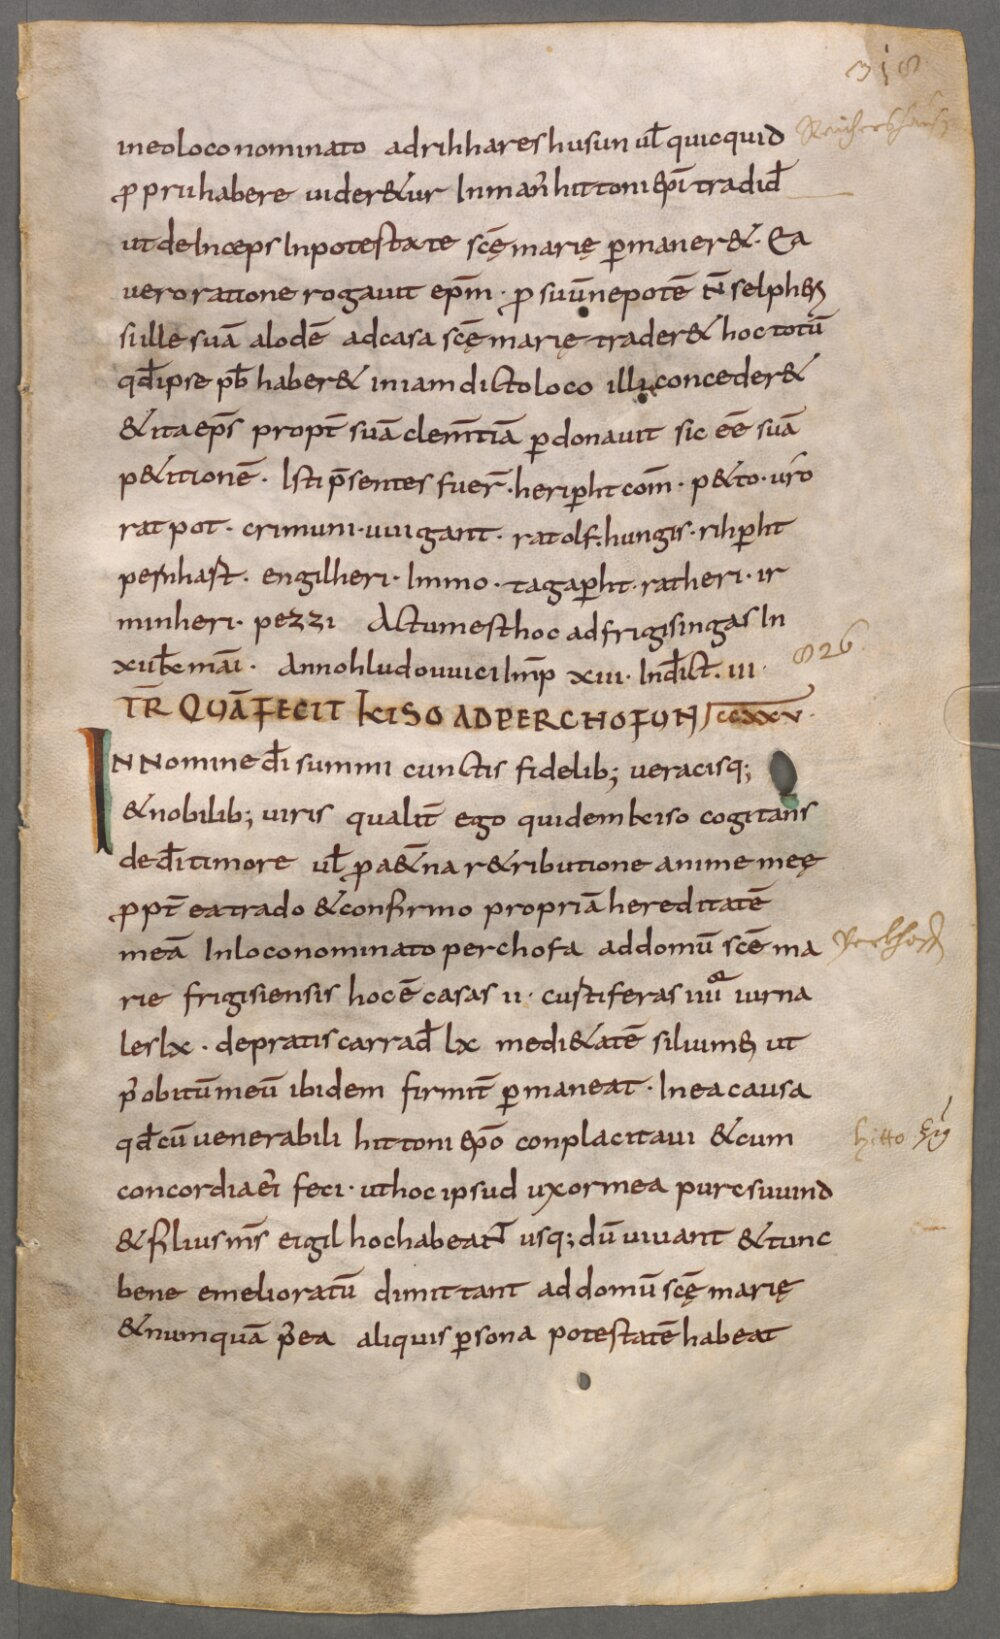 318
in eo loco nominato ad rihhareshusun ul̄ quicquid
Reichershaus
ꝓprii habere uider&ur In man̄ hittoni ep̄i tradid̄
ut deInceps In potestate sc̄ę marię ꝑmaner&. Ea
uero ratione rogauit ep̄m. ꝓ suū nepotē N̄ selpherꝫ
si ille suā alodē ad casa sc̄ę marię trader& hoc totū
qd̄ ipse pb̄ haber& in iam dicto loco illi conceder&
& ita ep̄s propt̄ suā clem̄tiā ꝑdonauit sic eē suā
p&itionē. Isti p̄sentes fuer̄. heripht com̄. p&to. uro
ratpot. crimuni. uuigant. ratolf. hungis. rihpht
pernhast. engilheri. Immo. tagapht. ratheri. ir
minheri. pezzi Actum est hoc ad frigisingas In
xui kl̄ mai. Anno hludouuici Imp̄ xiii. Indict. iii.
826
TR̄ QUĀ FECIT KISO AD PERCHOFUN ccxxv.
IN Nomine dī summi cunctis fidelib; ueracisq;
& nobilib; uiris qualit̄ ego quidem kiso cogitans
de dī timore ul̄ ꝓ a&̄na r&ributione anime meę
ꝓpt̄ ea trado & confirmo propriā hereditatē
meā In loco nominato perchofa ad domū scē ma
Perkhoff
rie frigisiensis hoc ē casas ii. custiferas iiii iurna
les lx. de pratis carrad̄ lx medi&atē siluium ut
p̄ obitū meū ibidem firmit̄ ꝑmaneat. In ea causa
qd̄ cū uenerabili hittoni ep̄o conplacitaui & cum
hitto
concordia ei feci. ut hoc ipsud uxor mea purcsuuind
& filius m̄s eigil hoc habeant usq; dū uiuant & tunc
bene emelioratū dimittant ad domū sc̄ę marię
& numquā p̄ ea aliquis ꝑsona potestatē habeat